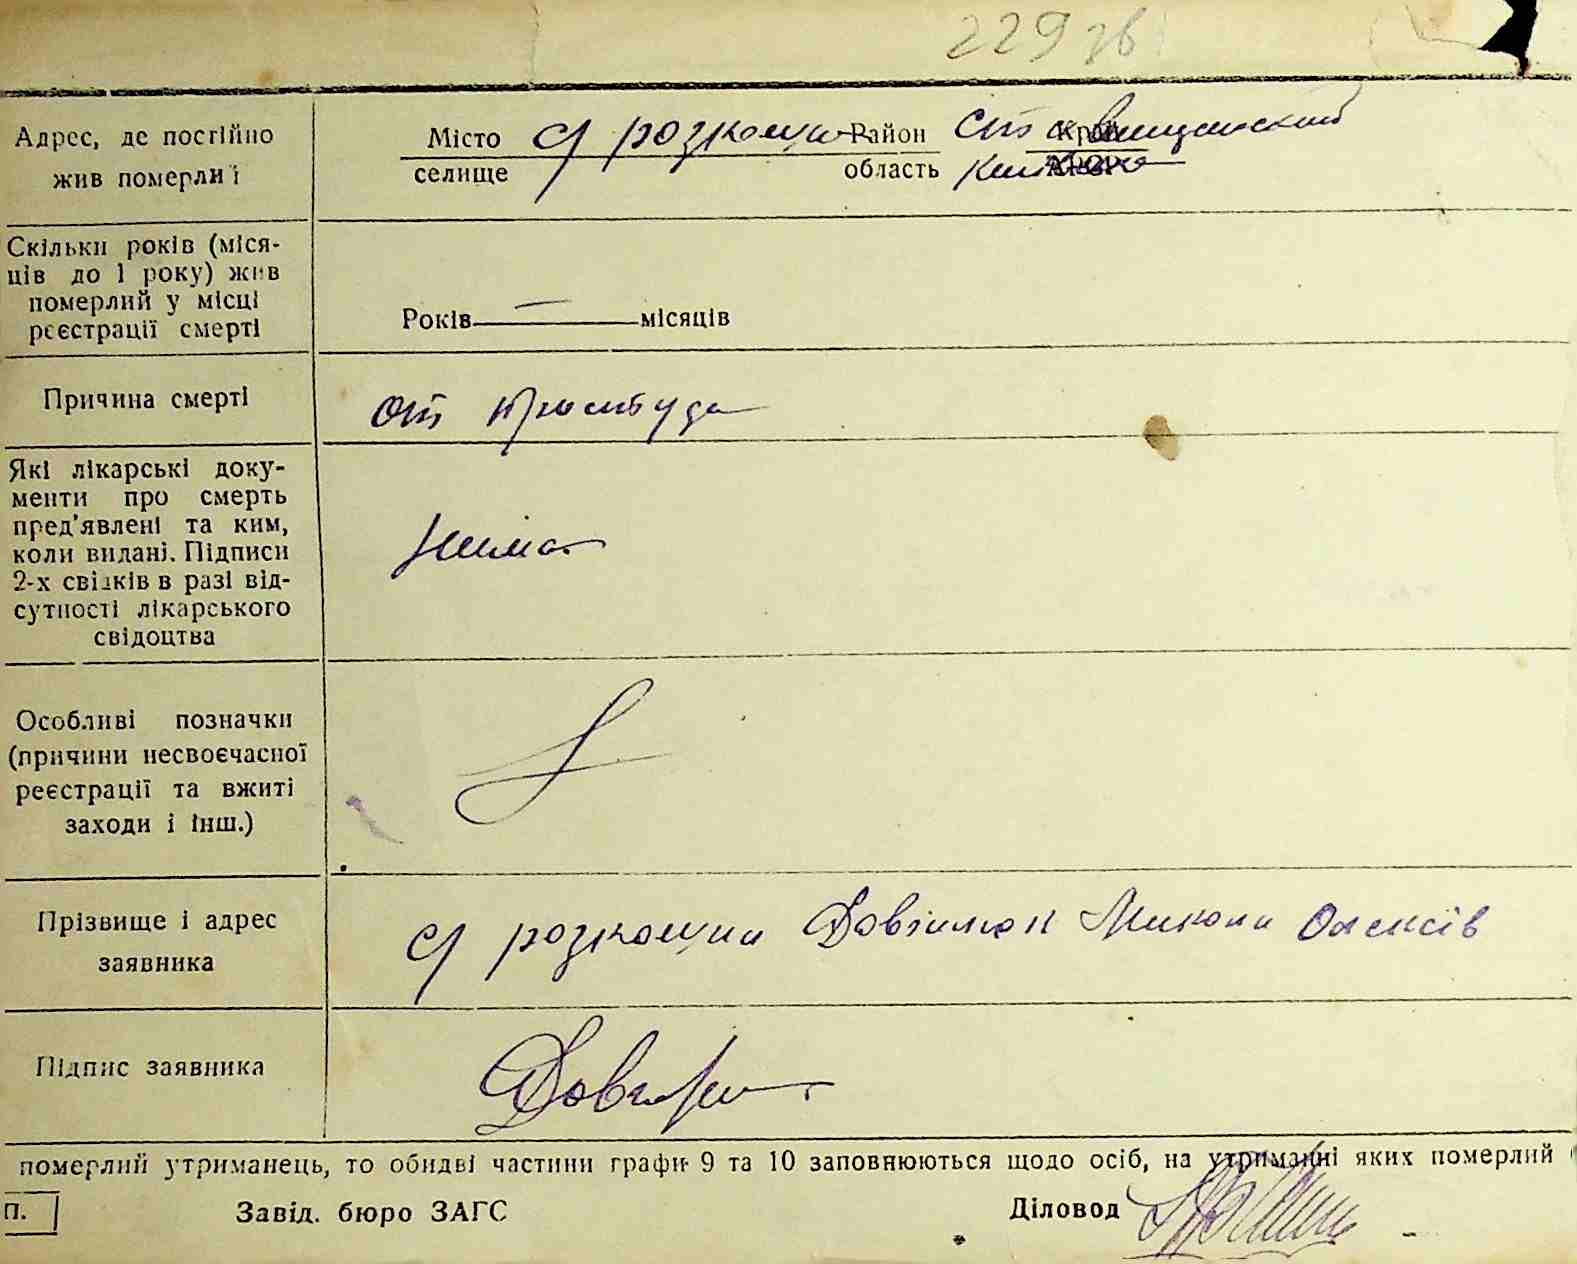 229 зв
Адрес, де постійно
жив померлиї
Місто с/ розкошна Район Ставищенський Край
селище область Київська АРСР
Скільки років (міся-
ців до 1 року) жив
померлий у місці
реєстрації смерті
Років — місяців
Причина смерті
от простуда
Які лікарські доку-
менти про смерть
пред'явлені та ким,
коли видані. Підписи
2-х свідків в разі від-
сутності лікарського
свідоцтва
нима
Особливі позначки
(причини несвоєчасної
реєстрації та вжиті
заходи і інш.)
Прізвище і адрес
заявника
с/ розкошна Микола Олексів
Підпис заявника
померлий утриманець, то обидві частини графи 9 та 10 заповнюються щодо осіб, на утриманні яких померлий
П.
Завід. бюро ЗАГС
Діловод